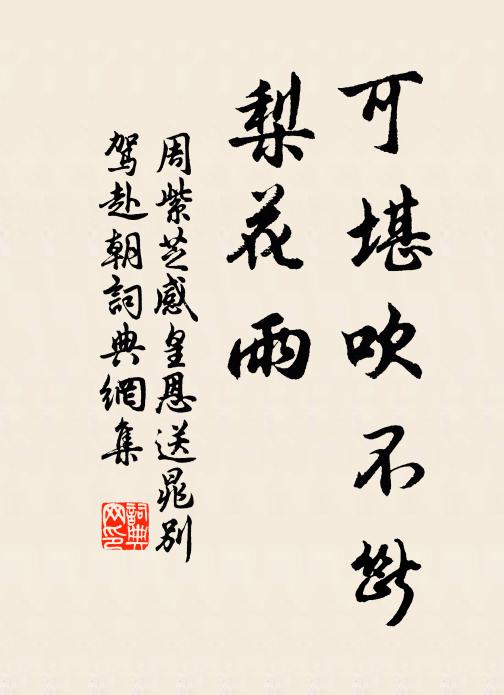 可堪吹不斷
梨花雨
周紫芝感皇恩送晁別
駕赴朝詞典網集
詞典
网印